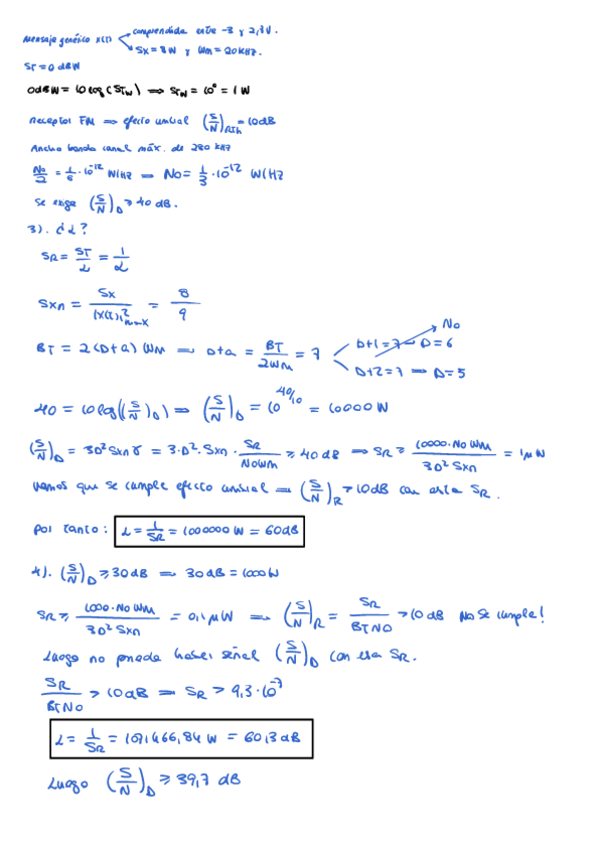 Mensaje genérico x(t) comprendida entre -3 y 2,8V.
Sx = 8W y Wm = 20KHz.
ST = 0 dBW
0dBW = 10 log(STW) ⟹ STW = 10⁰ = 1 W
Receptor FM ⟹ efecto umbral (S/N)RTh = 10dB
Ancho banda canal máx. de 280 kHz
No/2 = 1/6 · 10⁻¹² W/Hz ⟹ No = 1/3 · 10⁻¹² W/Hz
Se exige (S/N)D ≥ 40 dB.
3). ¿L?
SR = ST/L = 1/L
Sxn = Sx/|x(t)|²max = 8/9
BT = 2(D+a) Wm ⟹ D+a = BT/2Wm = 7
D+1 = 7 ⟹ D = 6 No
D+2 = 7 ⟹ D = 5
40 = 10 log((S/N)D) ⟹ (S/N)D = 10^(40/10) = 10000 W
(S/N)D = 3D²Sxnγ = 3·D²·Sxn · SR/NoWm ≥ 40 dB ⟹ SR ≥ 10000·No Wm/3D²Sxn = 1μW
Vemos que se cumple efecto umbral ⟹ (S/N)R > 10dB con esta SR.
Por tanto: L = 1/SR = 1000000 W = 60dB
4). (S/N)D ≥ 30 dB ⟹ 30 dB = 1000W
SR ≥ 1000·No Wm/3D²Sxn = 0,1 μW ⟹ (S/N)R = SR/BTNO > 10 dB No se cumple!
Luego no puede haber señal (S/N)D con esa SR.
SR/BTNO > 10 dB ⟹ SR > 9,3·10⁻⁷
L = 1/SR = 1071466,84 W = 60,3 dB
Luego (S/N)D ≥ 39,7 dB